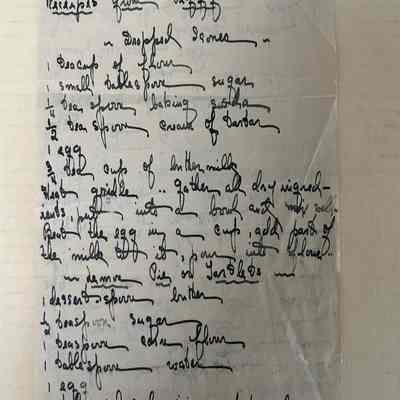 Receipes from
~ Dropped Scones ~
1 teacup of flour
1 small tablespoon sugar
1/4 tea spoon baking soda
1/2 tea spoon cream of tartar
1 egg
3/4 tea cup of buttermilk
Heat griddle .. gather all dry ingred-
ients, put into a bowl and mix well.
Beat the egg in a cup, add part of
the milk to it, pour into flour
~ Lemon Pie or Tartlets ~
1 dessertspoon butter
1/2 teaspoon sugar
1 teaspoon corn flour
1 tablespoon water
1 egg